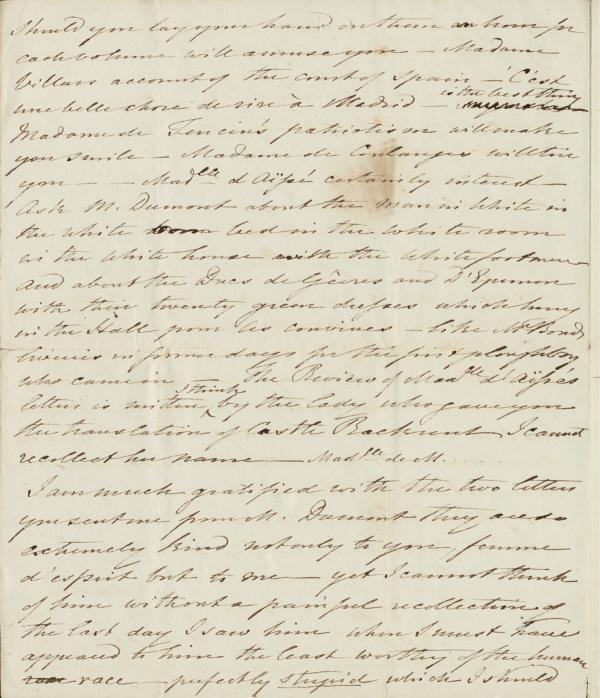 Should you lay your hand on them an hour for
each volume will amuse you — Madame
Villars account of the court of Spain — C'est
une belle chose de rire à Madrid — is the best thing
Madame de Tencin's patriotism will make
you smile — Madame de Coulanges will tire
you — — Madlle d'Aïssé certainly interest —
Ask M. Dumont about the man in White in
the white room bed in the white room
in the white house with the white footmen
and about the Ducs de Gêvres and D'Epernon
with their twenty green dresses which hung
in the Hall pour les convives — like Mr Bond's
liveries in former days for the first ploughboy
who came in The Review of Madlle d'Aïssé's
letters is written I think by the lady who gave you
the translation of Castle Rackrent I cannot
recollect her name — Madlle de M.......
I am much gratified with the two letters
you sent me from M. Dumont they are so
extremely kind not only to you, femme
d'esprit but to me — yet I cannot think
of him without a painful recollection of
the last day I saw him when I must have
appeared to him the least worthy of the human
race — perfectly stupid which I should